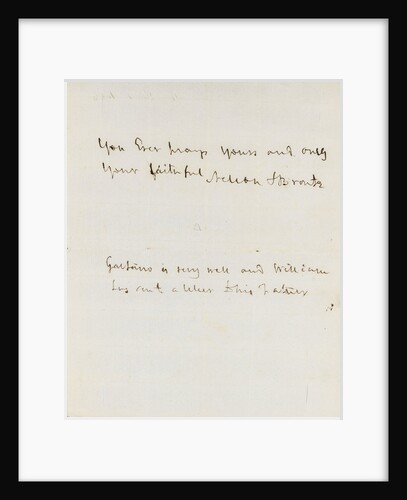 You Ever prays Yours and only
Your faithful Nelson & Bronte
Gaetano is very well and William
has sent a letter to his Father